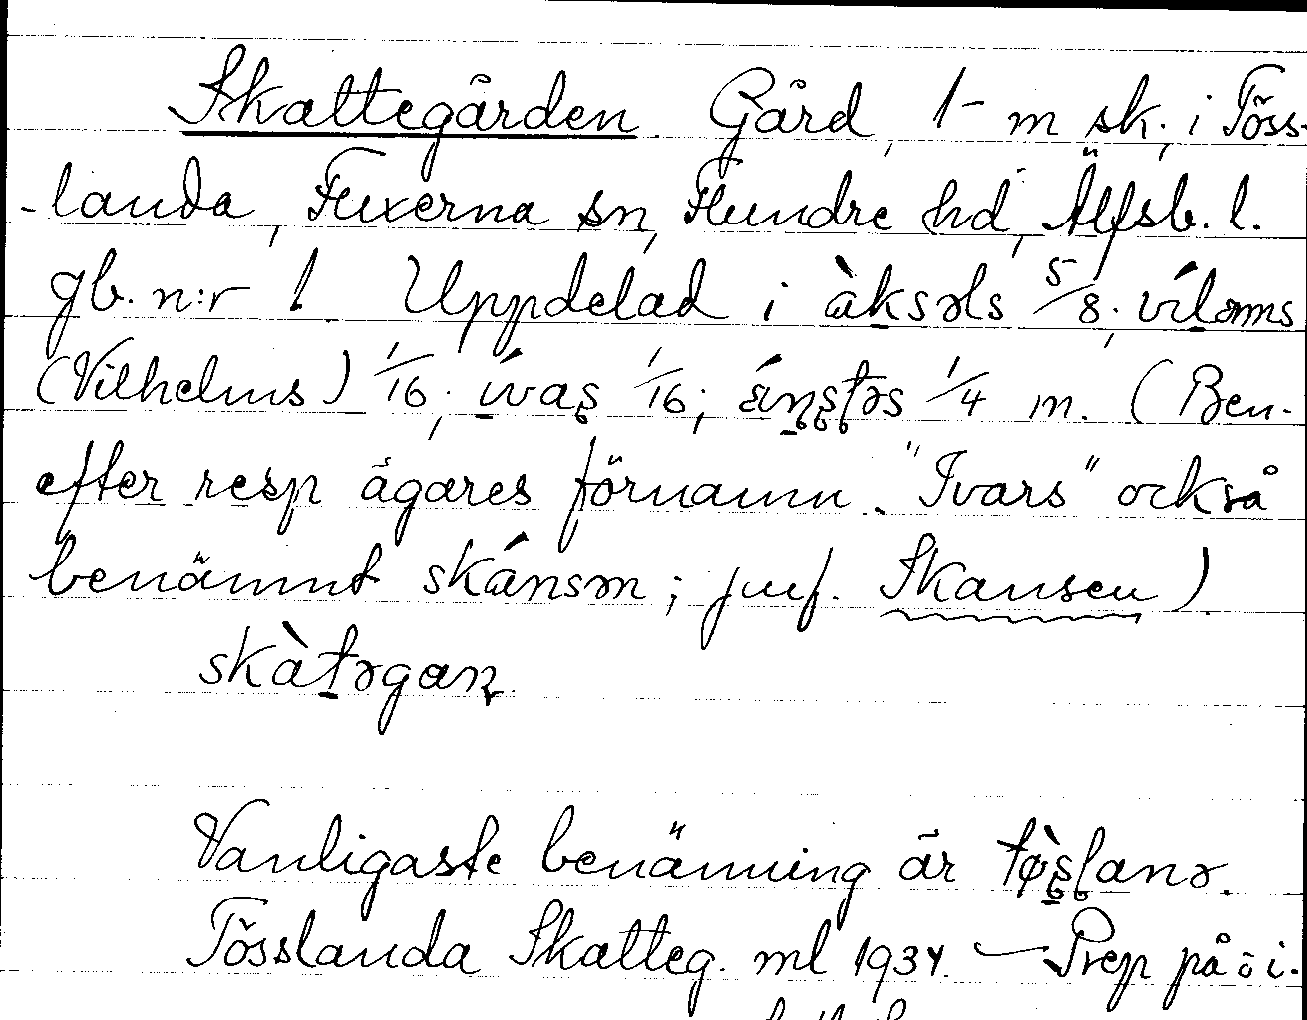 Skattegården. Gård, 1 m sk. i Töss-
-landa, Fuxerna sn, Flundre hd, Älfsb. l.
gb. n:r 1. Uppdelad i àksəls 5/8; víləms
(Vilhelms) 1/16; ívaş 1/16; 1/4 m. (Ben.
efter resp ägares förnamn. "Ivars" också
benämnt skánsən; jmf. Skansen).
skàtəgaɳ
Vanligaste benämning är tø̀şlanə.
Tösslanda Skatteg. ml 1934. — Prep på o i.